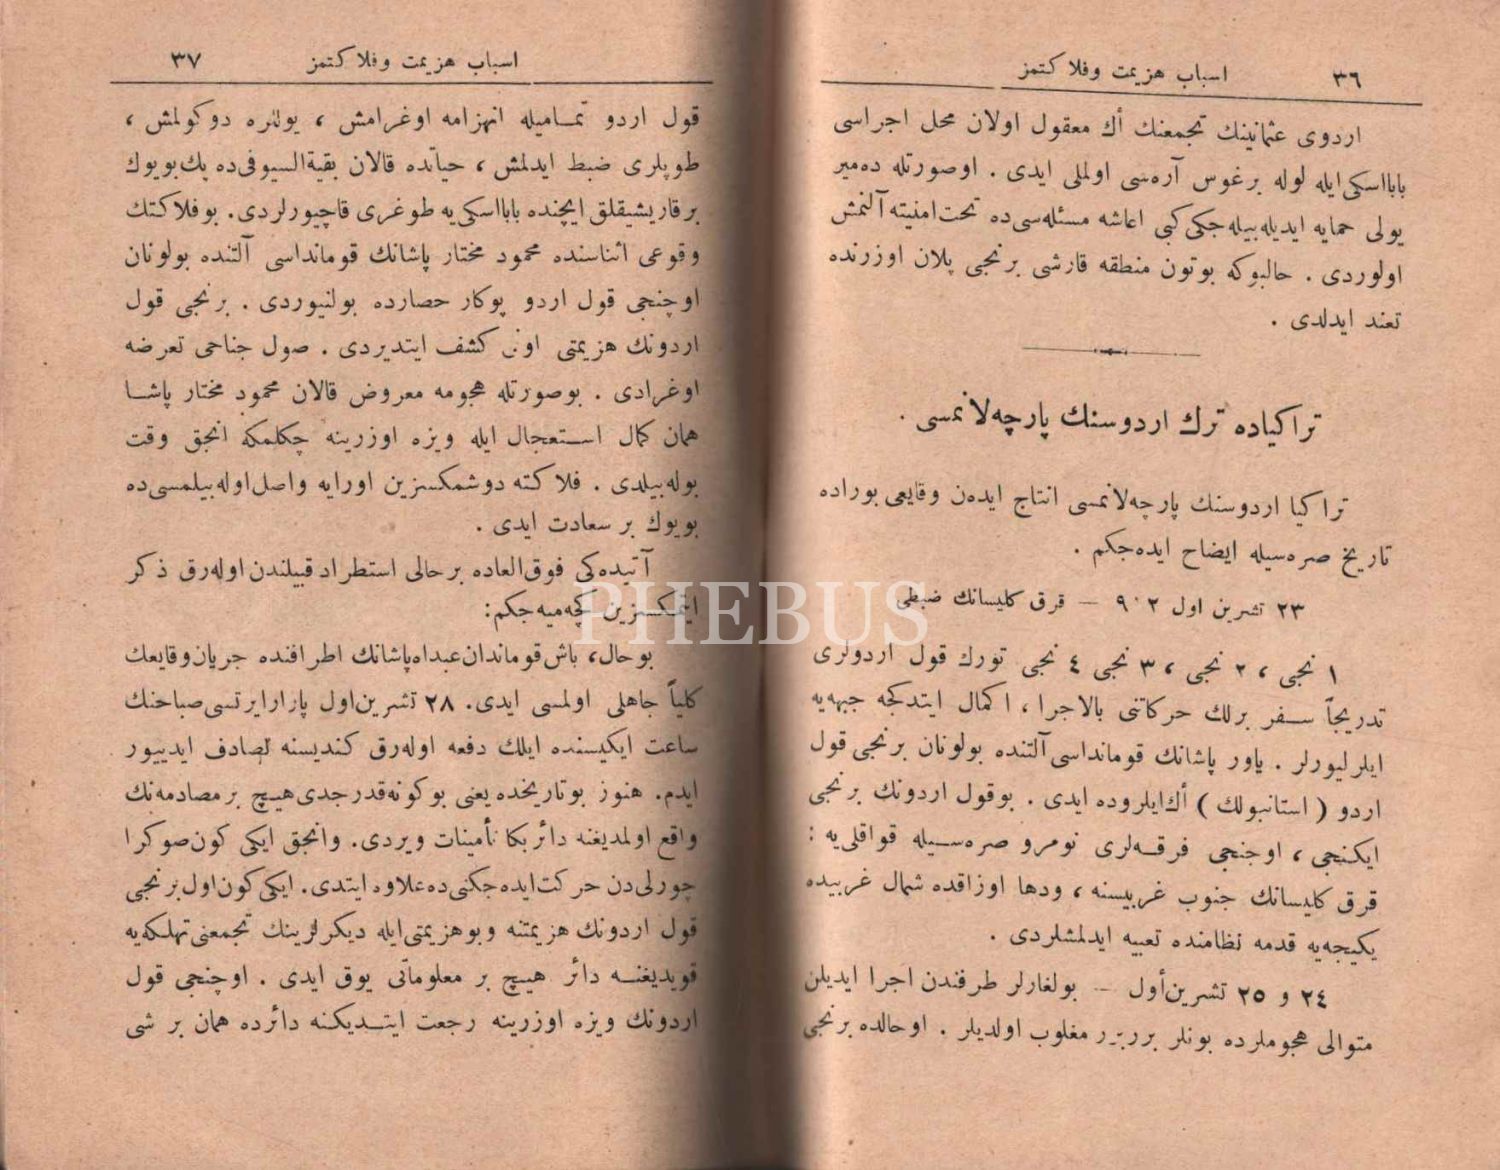 ٣٦ اسباب هزيمت وفلاكتمز
اردوی عثمانينك تجمعنك أك معقول اولان محل اجراسی
بابااسكی ايله لوله برغوس آره‌سی اولملی ايدی . اوصورتله ده‌مير
يولی حمايه ايديله‌بيله‌جكی كبی اعاشه مسئله‌سی‌ده تحت‌امنيته آلنمش
اولوردی . حالبوكه بوتون منطقه قارشی برنجی پلان اوزرنده
تعند ايدلدی .
تراكياده ترك اردوسنك پارچه‌لانمسی .
تراكيا اردوسنك پارچه‌لانمسی انتاج ايده‌ن وقايعی بوراده
تاريخ صره‌سيله ايضاح ايده‌جكم .
٢٣ تشرين اول ٩٠٢ — قرق كليسانك ضبطی
١ نجی ، ٢ نجی ، ٣ نجی ٤ نجی تورك قول اردولری
تدريجاً سفر برلك حركاتنی بالاجرا ، اكمال ايتدكجه جبهه‌يه
ايلرليورلر . ياور پاشانك قومانداسی آلتنده بولونان برنجی قول
اردو ( استانبولك ) أك‌ايلروده ايدی . بوقول اردونك برنجی
ايكنجی ، اوجنجی فرقه‌لری نومرو صره‌سيله قواقلی‌يه :
قرق كليسانك جنوب غربيسنه ، ودها اوزاقده شمال غربيده
يكيجه‌يه قدمه نظامنده تعبيه ايدلمشلردی .
٢٤ و ٢٥ تشرين‌أول — بولغارلر طرفندن اجرا ايديلن
متوالی هجوملرده بونلر بررر مغلوب اولديلر . اوحالده برنجی
اسباب هزيمت وفلاكتمز ٣٧
قول اردو تماميله انهزامه اوغرامش ، يوللره دوكولمش ،
طوپلری ضبط ايدلمش ، حياتده قالان بقية‌السيوفی‌ده پك‌بويوك
برقاريشيقلق ايچنده بابااسكی‌يه طوغری قاچيورلردی. بوفلاكتك
وقوعی اثناسنده محمود مختار پاشانك قومانداسی آلتنده بولونان
اوچنجی قول اردو پوكار حصارده بولنيوردی . برنجی قول
اردونك هزيمتی اونی كشف ايتديردی . صول جناحی تعرضه
اوغرادی . بوصورتله هجومه معروض قالان محمود مختار پاشا
همان كمال استعجال ايله ويزه اوزرينه چكلمكه انجق وقت
بوله‌بيلدی . فلاكته دوشمكسزين اورايه واصل‌اوله‌بيلمسی‌ده
بويوك بر سعادت ايدی .
آتيده‌كی فوق‌العاده برحالی استطراد قبيلندن اوله‌رق ذكر
ايتمكسزين كچه‌ميه‌جكم:
PHEBUS
بوحال، باش‌قوماندان‌عبداه‌پاشانك اطرافنده جريان‌وقايعك
كلياً جاهلی اولمسی ايدی. ٢٨ تشرين‌اول پازارايرتسی‌صباحنك
ساعت ايكيسنده ايلك دفعه اوله‌رق كنديسنه تصادف ايدييور
ايدم. هنوز بوتاريخده‌يعنی بوكونه‌قدرجدی‌هيچ برمصادمه‌نك
واقع اولمديغنه دائربكا تأمينات ويردی. وانجق ايكی كون‌صوكرا
چورلی‌دن حركت‌ايده‌جكنی‌ده‌علاوه ايتدی. ايكی‌كون‌اول‌برنجی
قول اردونك هزيمتنه وبوهزيمتی‌ايله ديكرلرينك تجمعنی‌تهلكه‌يه
قويديغنه دائر هيچ بر معلوماتی يوق ايدی . اوچنجی قول
اردونك ويزه اوزرينه رجعت ايتديكنه دائرده همان بر شی